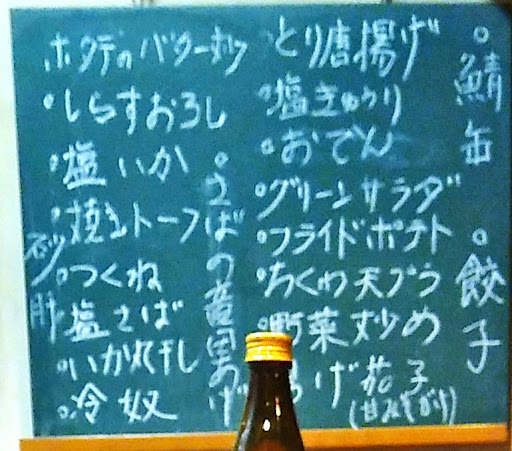 鯖缶
餃子
とり唐揚げ
塩きゅうり
おでん
グリーンサラダ
フライドポテト
ちくわ天プラ
野菜炒め
げ茄子
さばの竜田あげ
ホタテのバター
しらすおろし
塩いか
焼きトーフ
つくね
塩さば
いか一干し
冷奴
砂肝